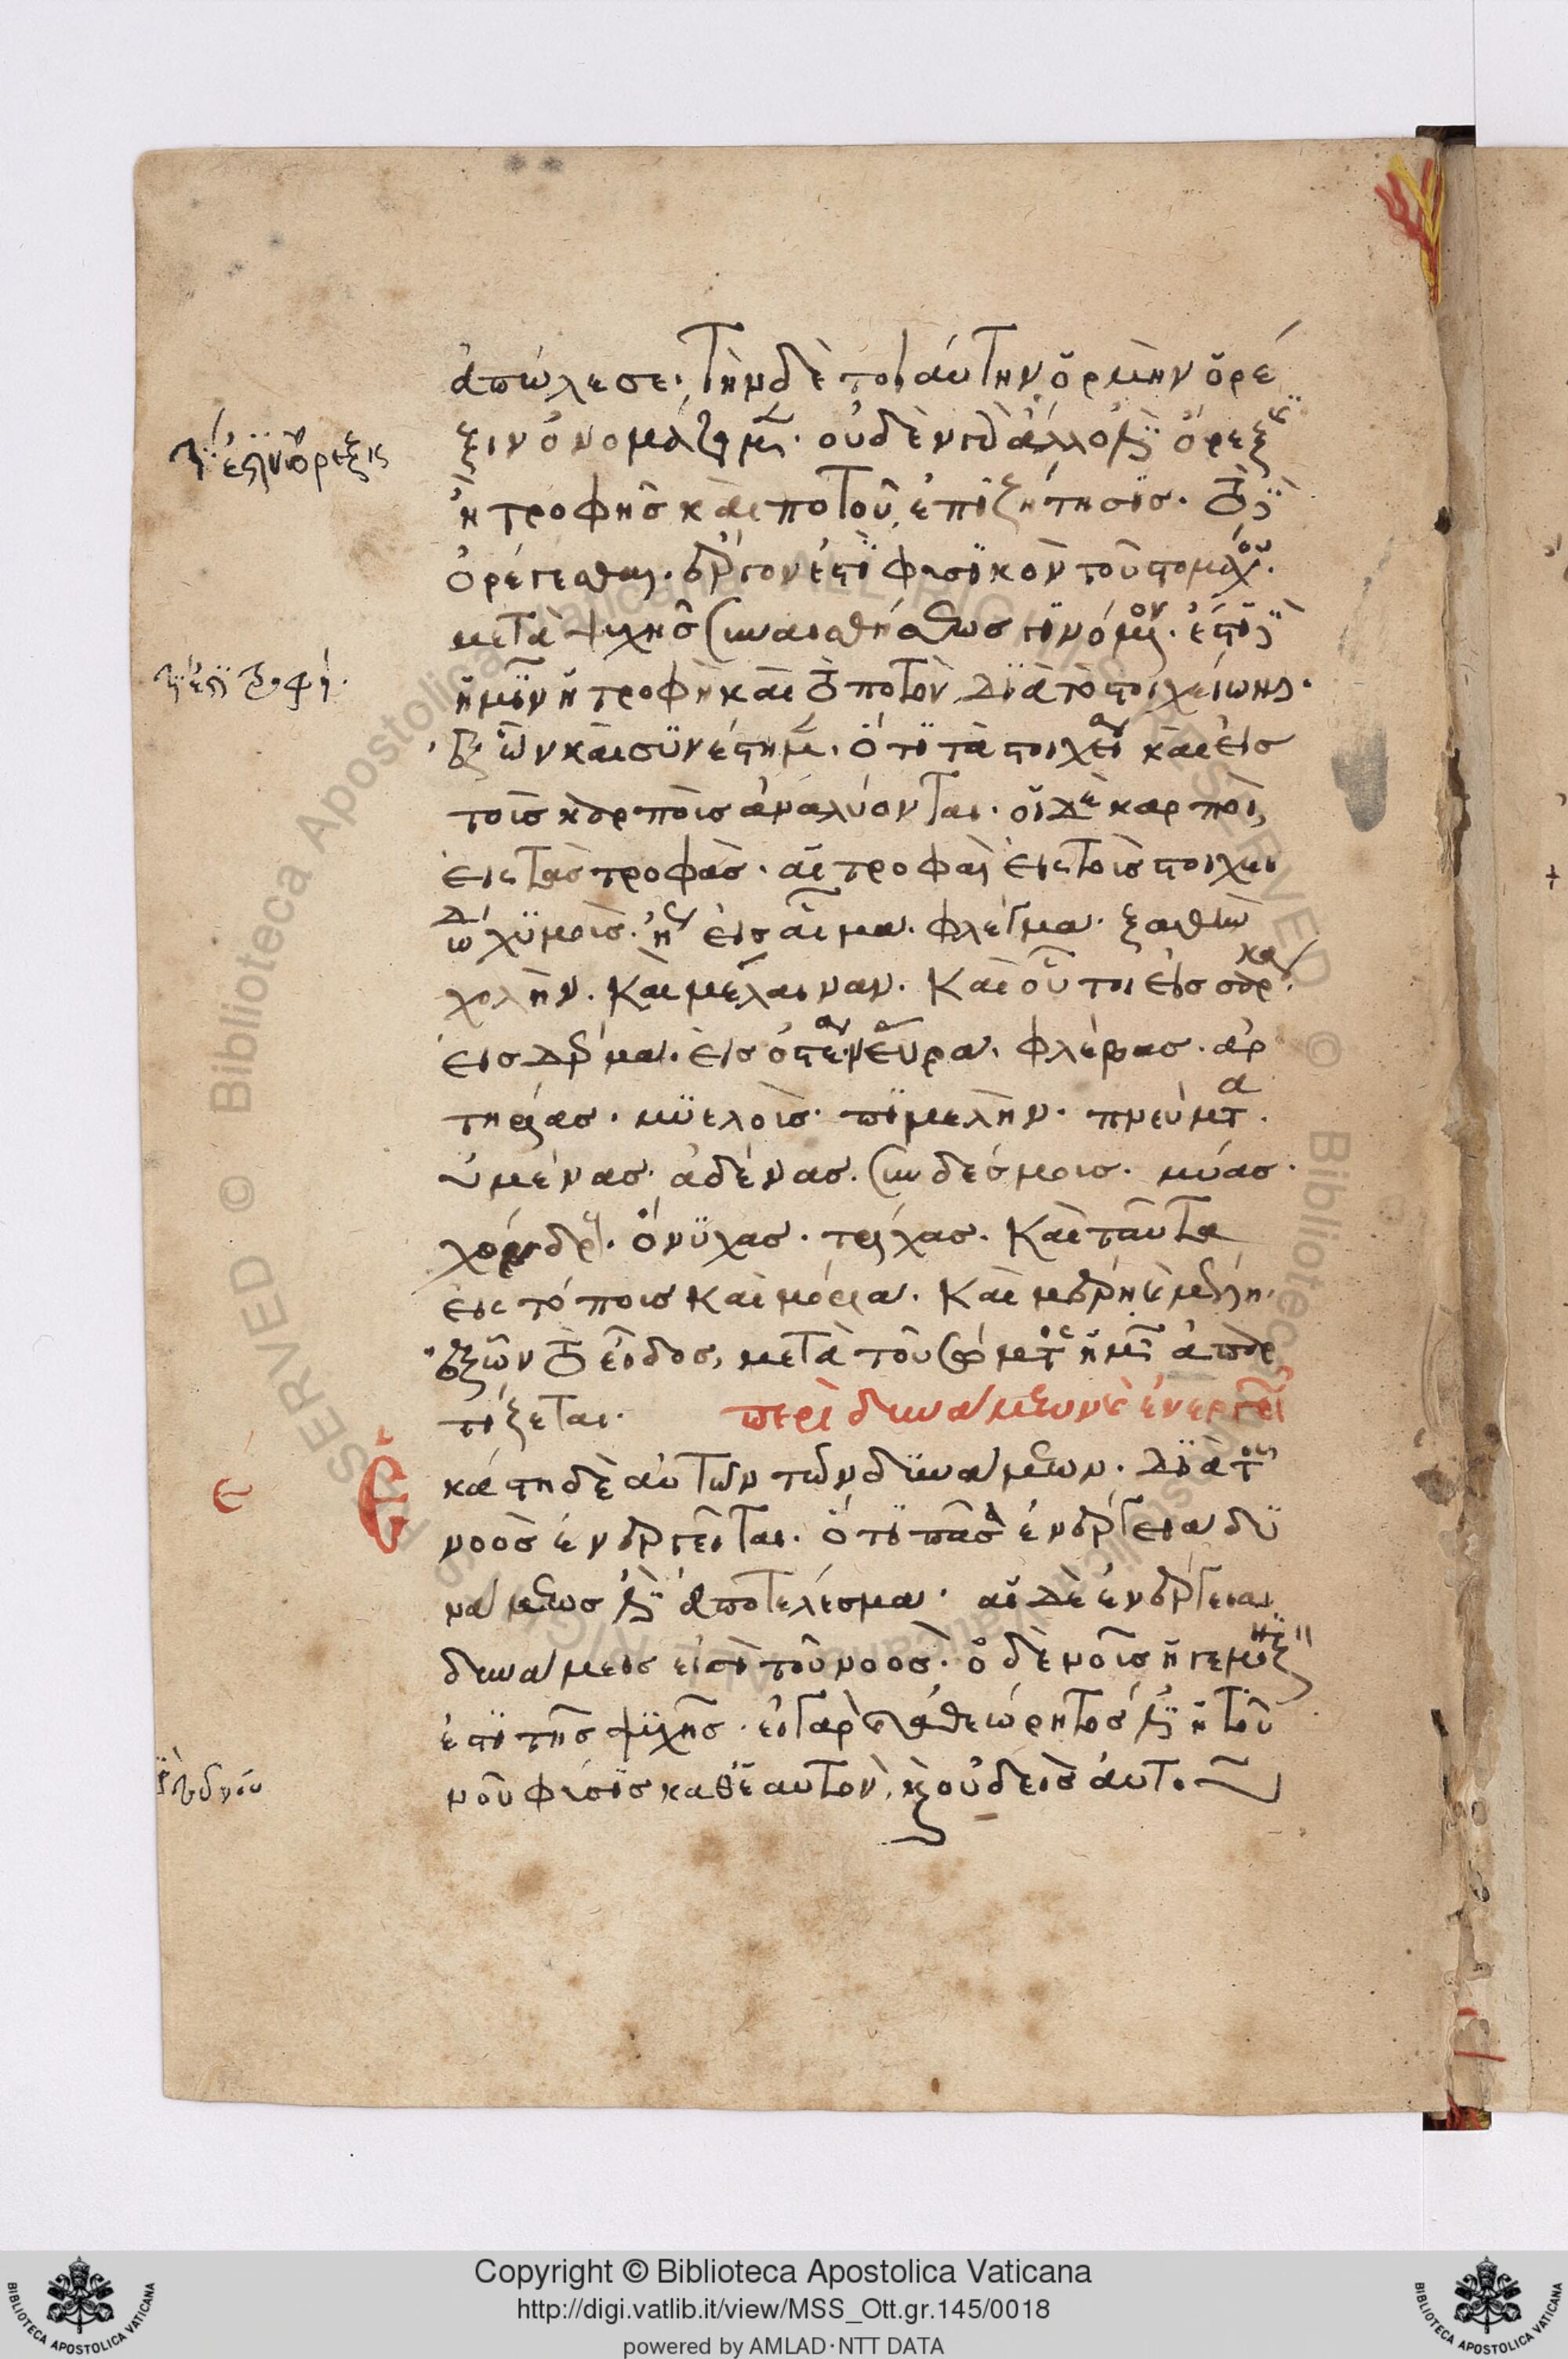 ἀπώλεσε. τὴν δὲ τοιαύτην ὁρμὴν ὄρε
ξιν ὀνομάζομεν. οὐδὲν γὰρ ἄλλο ἐστὶν ὄρεξις
ἢ τροφῆς καὶ ποτοῦ ἐπιζήτησις. τὸ
ὀρέγεσθαι. ἔργον ἐστὶ φυσικὸν τοῦ στομάχου.
μετὰ ψυχῆς συναισθήσεως γινόμενον. ἐστὶ
ἡμῖν ἡ τροφὴ καὶ τὸ ποτὸν διὰ τὸ στοιχειω
ἐξ ὧν καὶ συνέστημεν. ὅτι τὰ στοιχεῖα καὶ εἰς
τοὺς καρποὺς ἀναλύονται. οἱ δὲ καρποὶ,
εἰς τὰς τροφάς. αἱ τροφαὶ εἰς τοὺς στοιχει
ώδεις χυμούς. εἰς αἷμα. φλέγμα. ξανθὴν
χολὴν. καὶ μέλαιναν. καὶ οὗτοι εἰς σάρκα.
εἰς δέρμα. εἰς ὀστέα. νεῦρα. φλέβας. ἀρ
τηρίας. μυελούς. πιμελὴν. πνεύματα.
ὑμένας. ἀδένας. συνδέσμους. μύας.
χόνδρους. ὄνυχας. τρίχας. καὶ ταῦτα
εἰς τόπους καὶ μόρια. καὶ μέρη καὶ μέλη.
ἐξ ὧν τὸ εἶδος, μετὰ τοῦ σώματος ἡμῶν ἀπαρ
τίζεται. περὶ δυνάμεων καὶ ἐνεργειῶν
Ἑκάστη δὲ αὐτῶν τῶν δυνάμεων. διὰ τοῦ
νοὸς ἐνεργεῖται. ὅτι πᾶσα ἐνέργεια δυ
νάμεως ἐστὶν ἀποτέλεσμα. αἱ δὲ ἐνέργειαι
δυνάμεις εἰσὶ τοῦ νοός. ὁ δὲ νοῦς ἡγεμὼν
ἐστὶ τῆς ψυχῆς. εἰ γὰρ καὶ ἀθεώρητος ἐστὶν ἡ τοῦ
νοῦ φύσις καθ' ἑαυτὸν, καὶ οὐδεὶς αὐτὸν
τί ἐστὶν ὄρεξις
τί ἐστι τροφή.
ε
περὶ τοῦ νοῦ
Copyright © Biblioteca Apostolica Vaticana
http://digi.vatlib.it/view/MSS_Ott.gr.145/0018
powered by AMLAD·NTT DATA
BIBLIOTECA APOSTOLICA VATICANA
BIBLIOTECA APOSTOLICA VATICANA